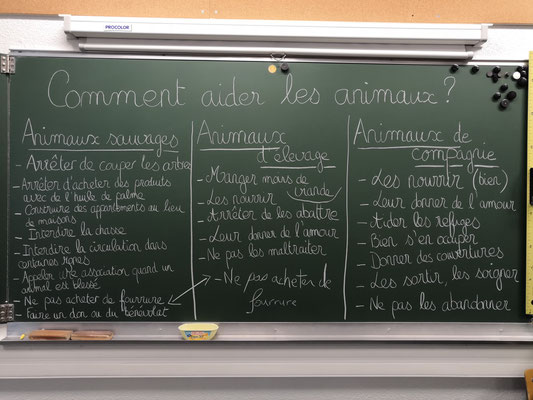 PROCOLOR
Comment aider les animaux?
Animaux sauvages
- Arrêter de couper les arbres
- Arrêter d'acheter des produits
avec de l'huile de palme
- Construire des appartements au lieu
de maisons
- Interdire la chasse
- Interdire la circulation dans
certaines zones
- Appeler une association quand un
animal est blessé
- Ne pas acheter de fourrure
- Faire un don ou du bénévolat
Animaux
d'élevage
- Manger moins de
viande
- Les nourrir
- Arrêter de les abattre
- Leur donner de l'amour
- Ne pas les maltraiter
- Ne pas acheter de
fourrure
Animaux de
compagnie
- Les nourrir (bien)
- Leur donner de l'amour
- Aider les refuges
- Bien s'en occuper
- Donner des couvertures
- Les sortir, les soigner
- Ne pas les abandonner